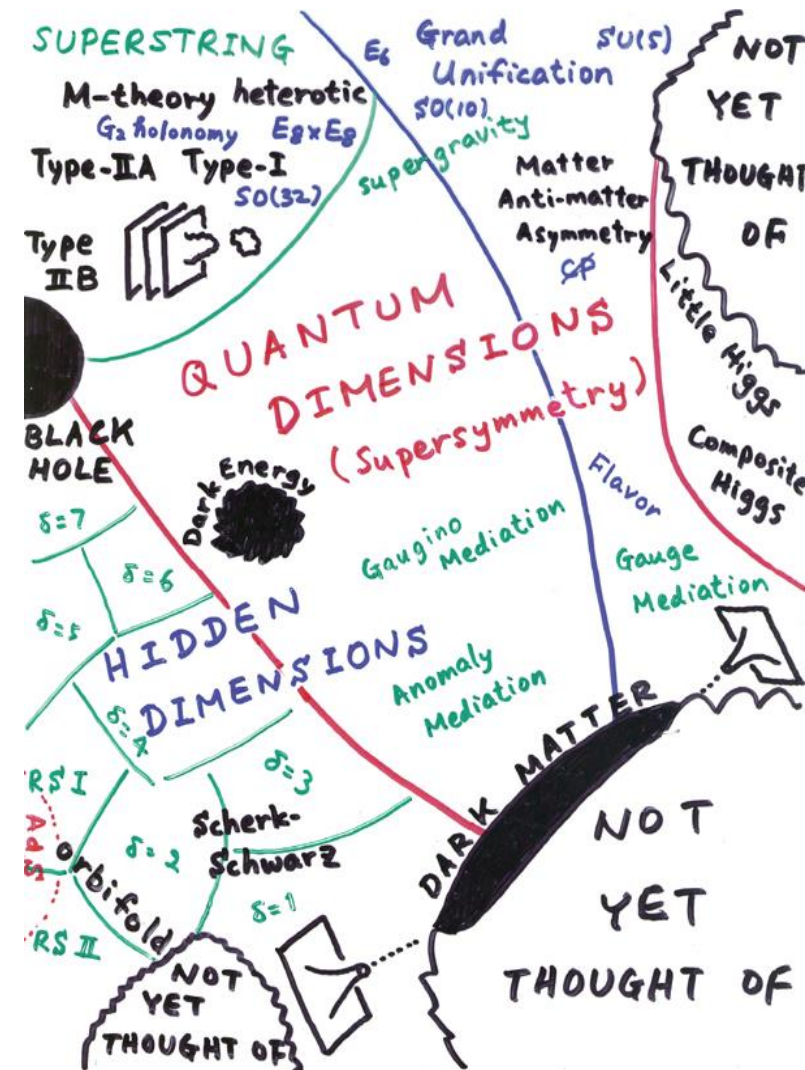 SUPERSTRING
M-theory heterotic
G₂ holonomy E₈×E₈
Type-IIA Type-I
SO(32)
Type
IIB
E₆
Grand
Unification
SU(5)
SO(10)
supergravity
Matter
Anti-matter
Asymmetry
CP
NOT
YET
THOUGHT
OF
Little Higgs
Composite
Higgs
QUANTUM
DIMENSIONS
(Supersymmetry)
BLACK
HOLE
Dark Energy
Flavor
Gaugino
Mediation
Gauge
Mediation
Anomaly
Mediation
δ=7
δ=6
δ=5
HIDDEN
DIMENSIONS
δ=4
δ=3
Scherk-
Schwarz
δ=2
δ=1
RS I
AdS
orbifold
RS II
NOT
YET
THOUGHT OF
DARK MATTER
NOT
YET
THOUGHT OF